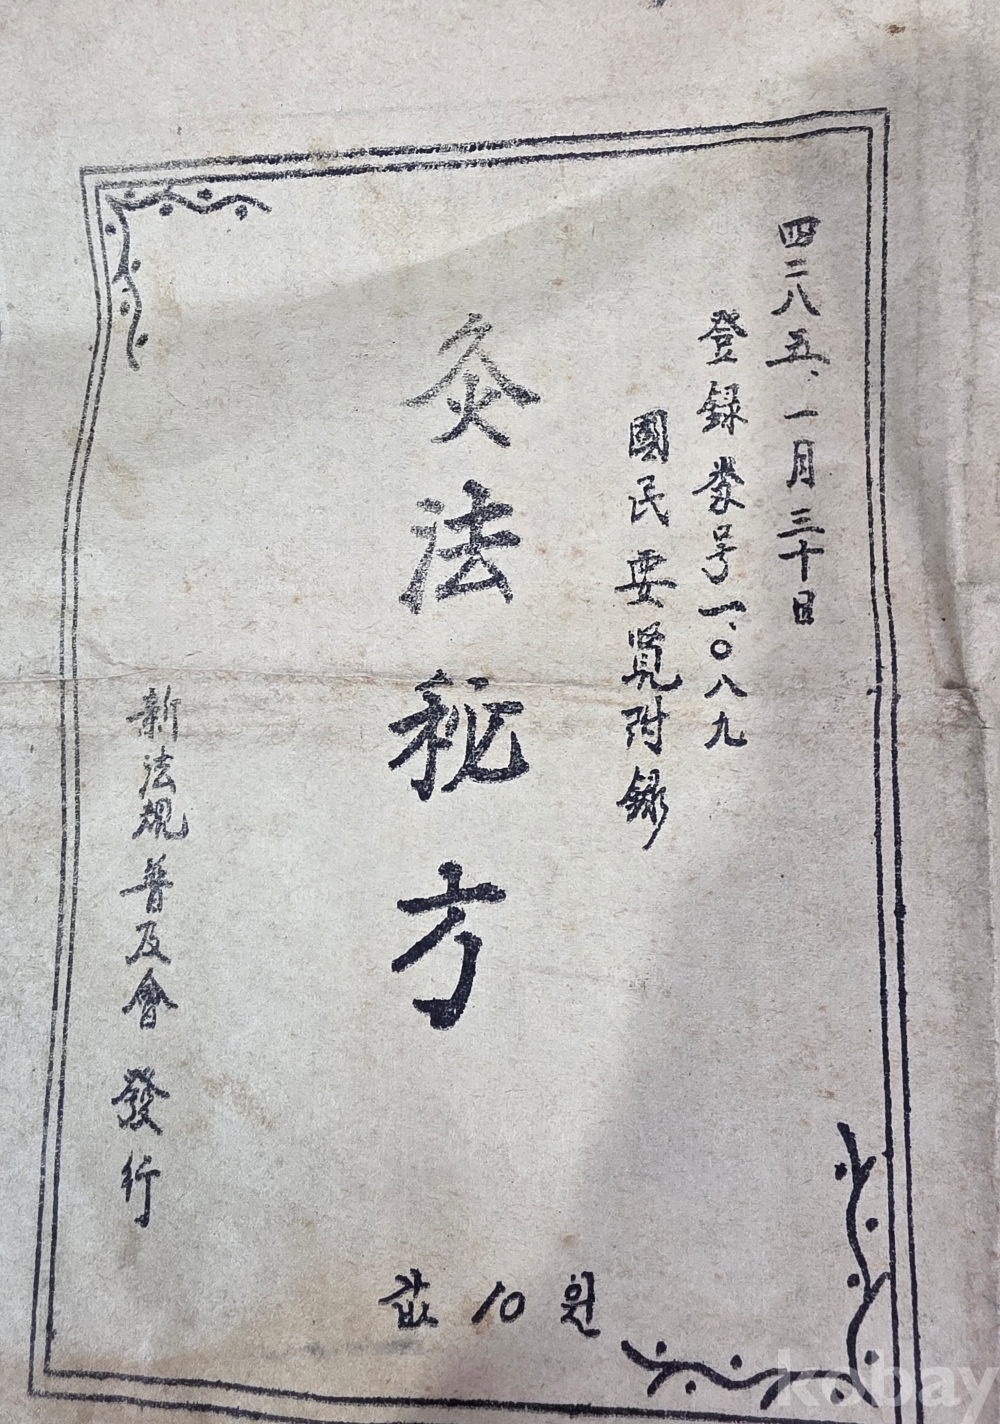 四二八五、一月三十日
登録番号一、〇八九
國民要覧附録
灸法秘方
新法規普及會 發行
값 10 원
kobay